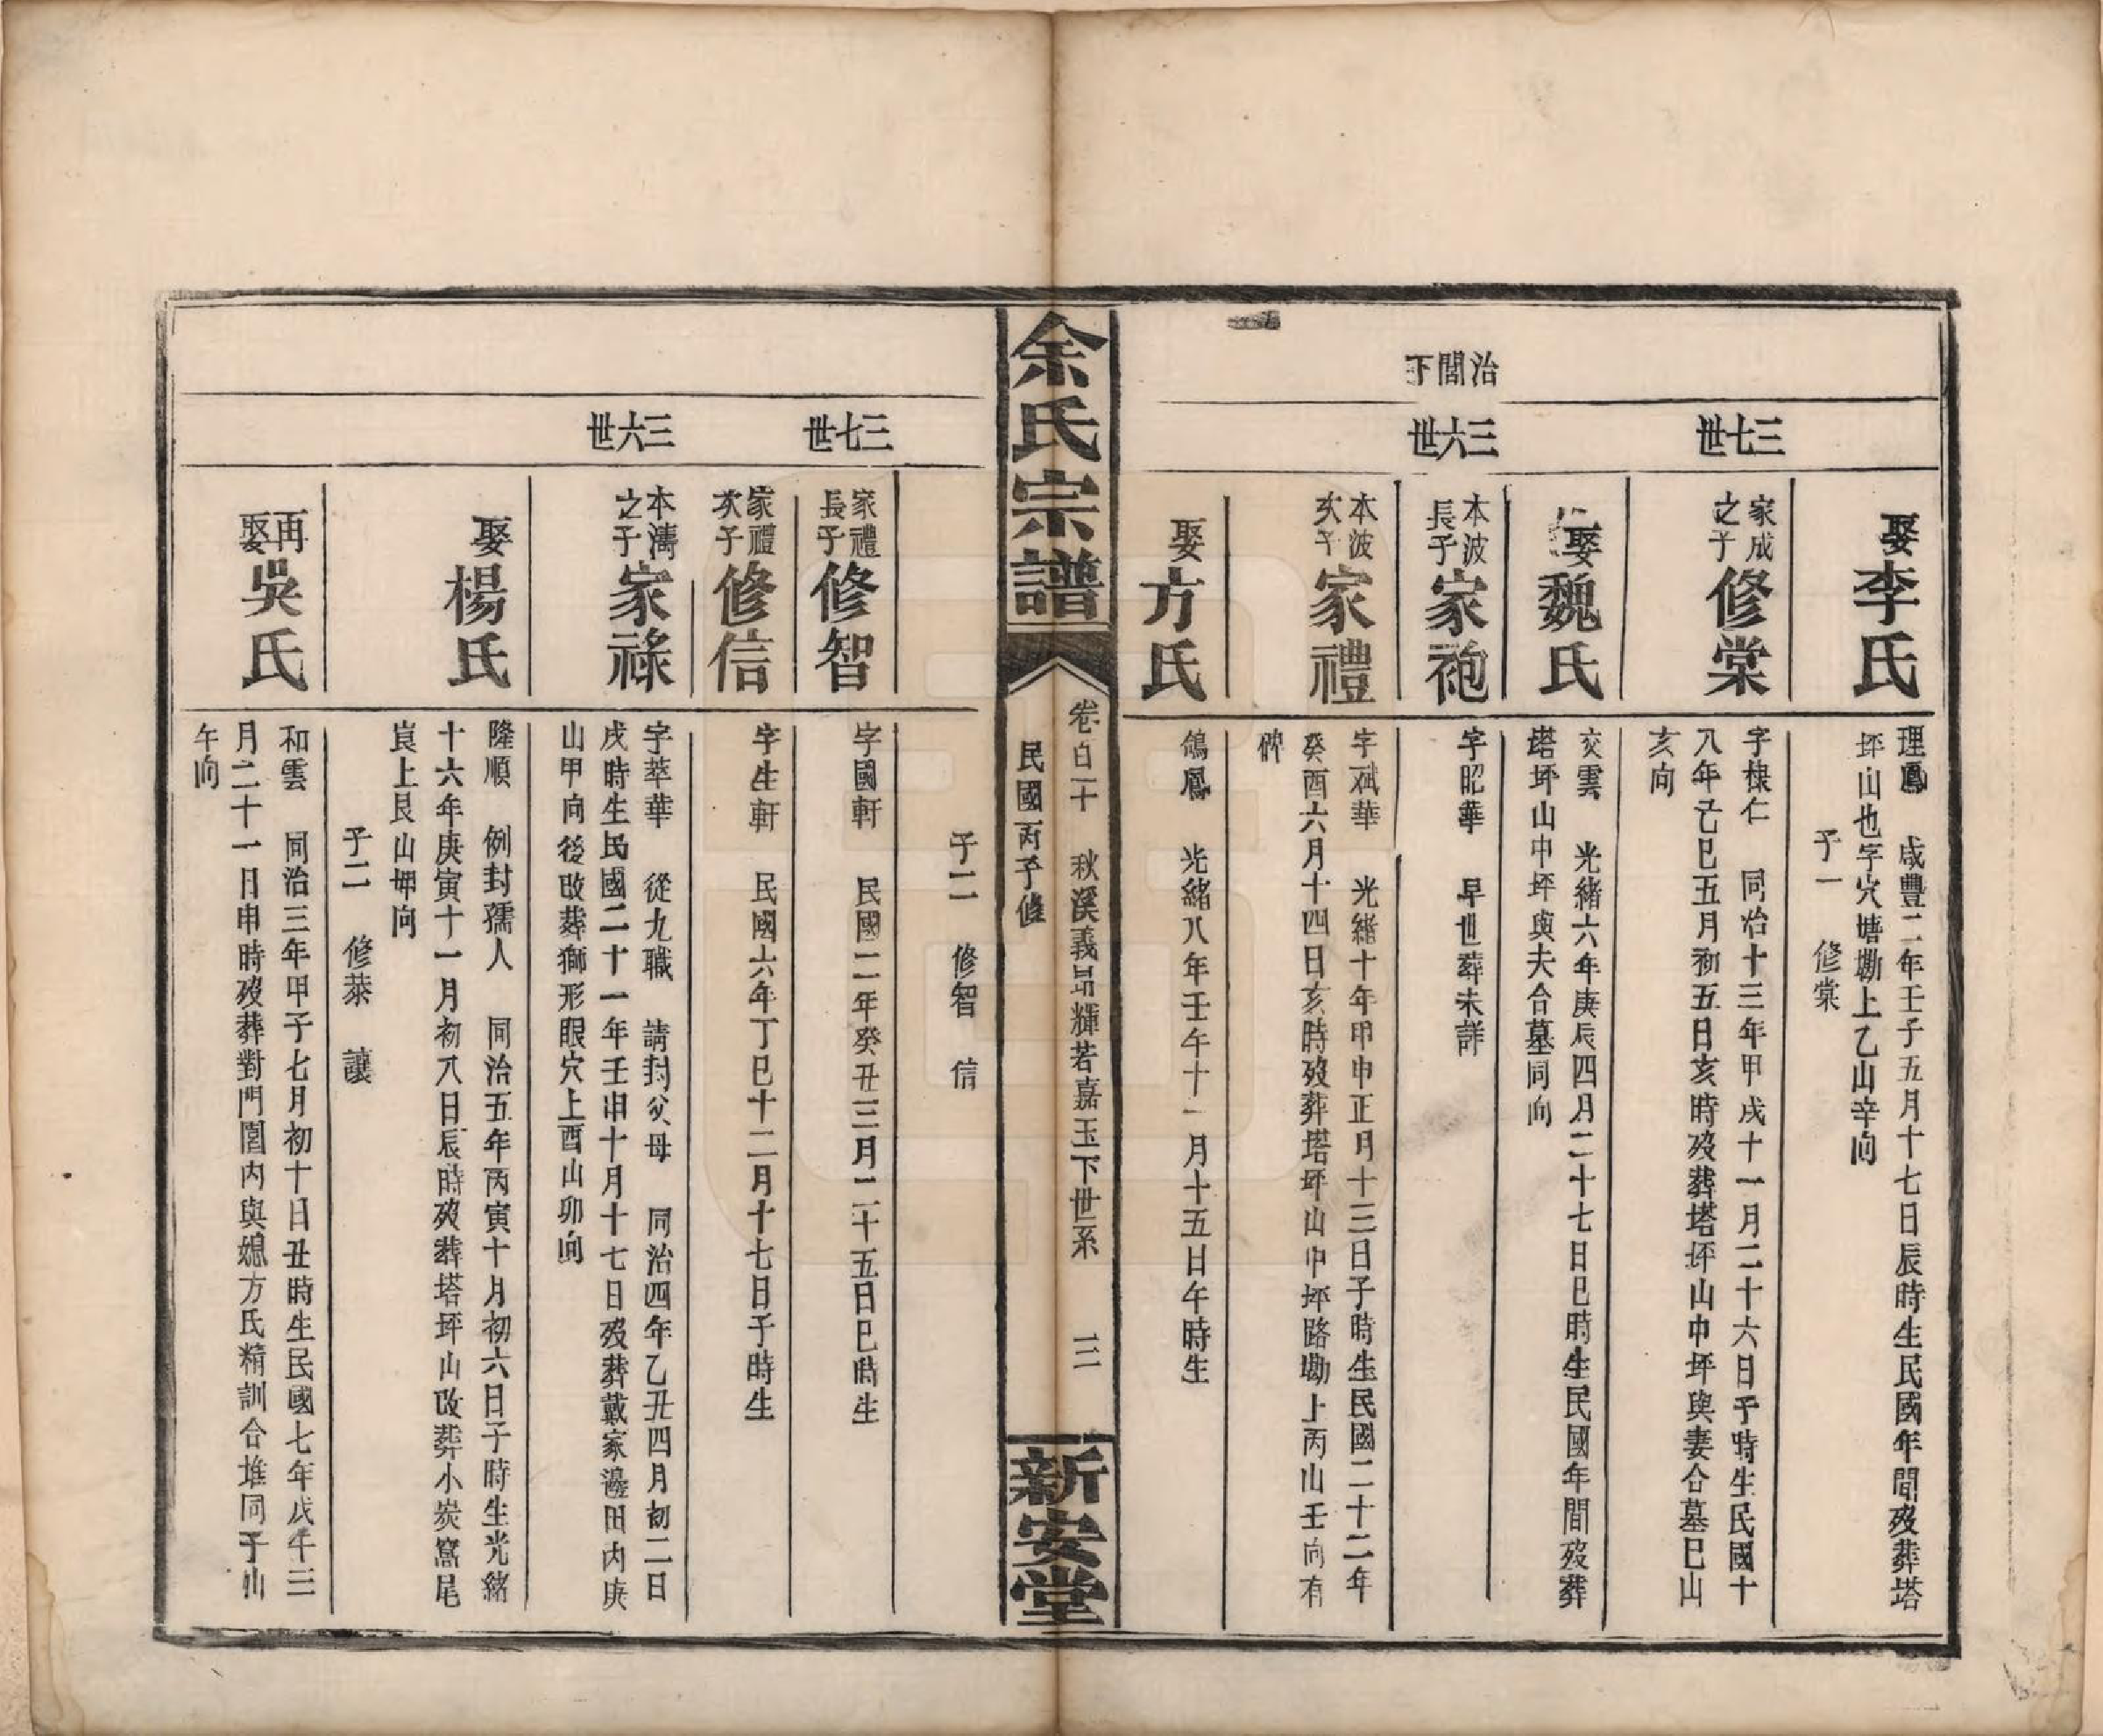 治閭下
三七世
三六世
娶李氏
理鳳　咸豐二年壬子五月十七日辰時生民國年間歿葬塔
坪山也字穴塘墈上乙山辛向
子一　修棠
家成之子修棠
字棣仁　同治十三年甲戌十一月二十六日子時生民國十
八年己巳五月初五日亥時歿葬塔坪山中坪與妻合墓巳山
亥向
娶魏氏
交雲　光緒六年庚辰四月二十七日巳時生民國年間歿葬
塔坪山中坪與夫合墓同向
本波長子家袍
字昭華　早世葬未詳
本波次子家禮
字斌華　光緒十年甲申正月十三日子時生民國二十二年
癸酉六月十四日亥時歿葬塔坪山中坪路墈上丙山壬向有
碑
娶方氏
鴿鳳　光緒八年壬午十一月十五日午時生
余氏宗譜
卷百二十　秋溪義昂輝若嘉玉下世系　三
民國丙子修
新安堂
子二　修智　信
三七世
家禮長子修智
字國軒　民國二年癸丑三月二十五日巳時生
家禮次子修信
字生軒　民國六年丁巳十二月十七日子時生
三六世
本濤之子家祿
字萃華　從九職　請封父母　同治四年乙丑四月初二日
戌時生民國二十一年壬申十月十七日歿葬戴家邊田內庚
山甲向後改葬獅形眼穴上酉山卯向
娶楊氏
隆順　例封孺人　同治五年丙寅十月初六日子時生光緒
十六年庚寅十一月初八日辰時歿葬塔坪山改葬小炭窩尾
崀上艮山坤向
子二　修恭　讓
再娶吳氏
和雲　同治三年甲子七月初十日丑時生民國七年戊午三
月二十一日申時歿葬對門園內與媳方氏精訓合堆同子山
午向